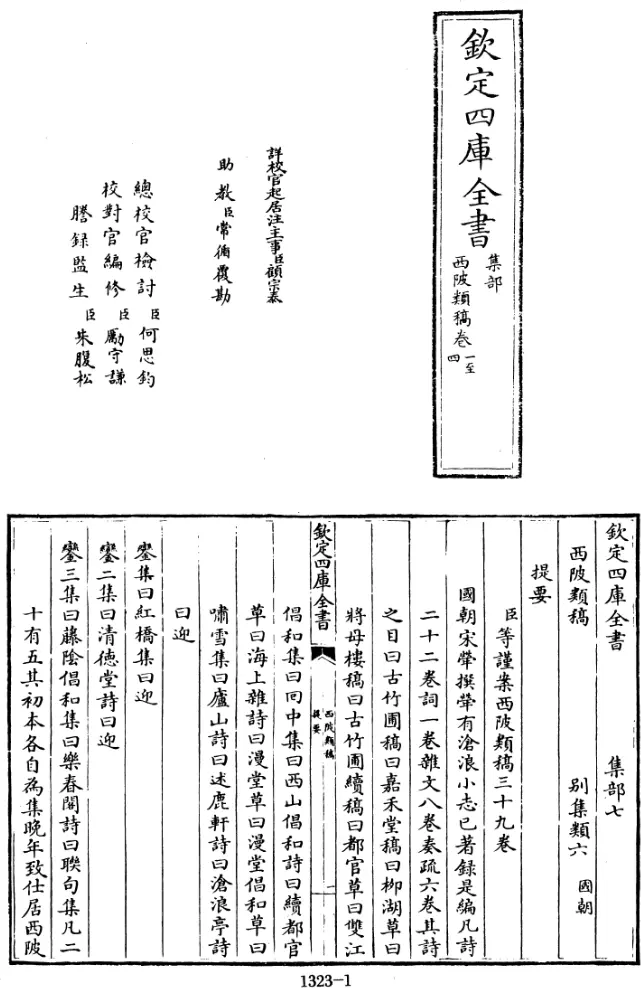 欽定四庫全書
集部
西陂類稿卷一至四
詳校官起居注主事臣顧宗泰
助教臣常循覆勘
總校官檢討臣何思鈞
校對官編修臣勵守謙
謄錄監生臣朱腹松
欽定四庫全書 集部七
西陂類稿 別集類六 國朝
提要
臣等謹案西陂類稿三十九卷
國朝宋犖撰犖有滄浪小志已著錄是編凡詩
二十二卷詞一卷雜文八卷奏疏六卷其詩
之目曰古竹圃稿曰嘉禾堂稿曰柳湖草曰
將母樓稿曰古竹圃續稿曰都官草曰雙江
欽定四庫全書
西陂類稿
提要
一
倡和集曰回中集曰西山倡和詩曰續都官
草曰海上雜詩曰漫堂草曰漫堂倡和草曰
嘯雪集曰廬山詩曰述鹿軒詩曰滄浪亭詩
曰迎
鑾集曰紅橋集曰迎
鑾二集曰清德堂詩曰迎
鑾三集曰藤陰倡和集曰樂春閣詩曰聯句集凡二
十有五其初本各自為集晚年致仕居西陂
1323-1